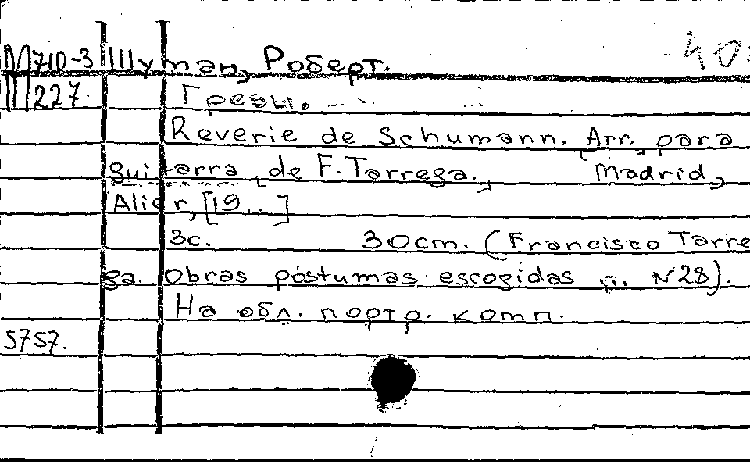 М710-3 Шуман, Роберт.
227. Грезы.
Reverie de Schumann. Arr. para
guitarra, de F. Tarrega., Madrid,
Alier, [19..]
3с. 30cm. (Francisco Tarre
ga. Obras póstumas escogidas N28).
На обл. портр. комп.
5757.